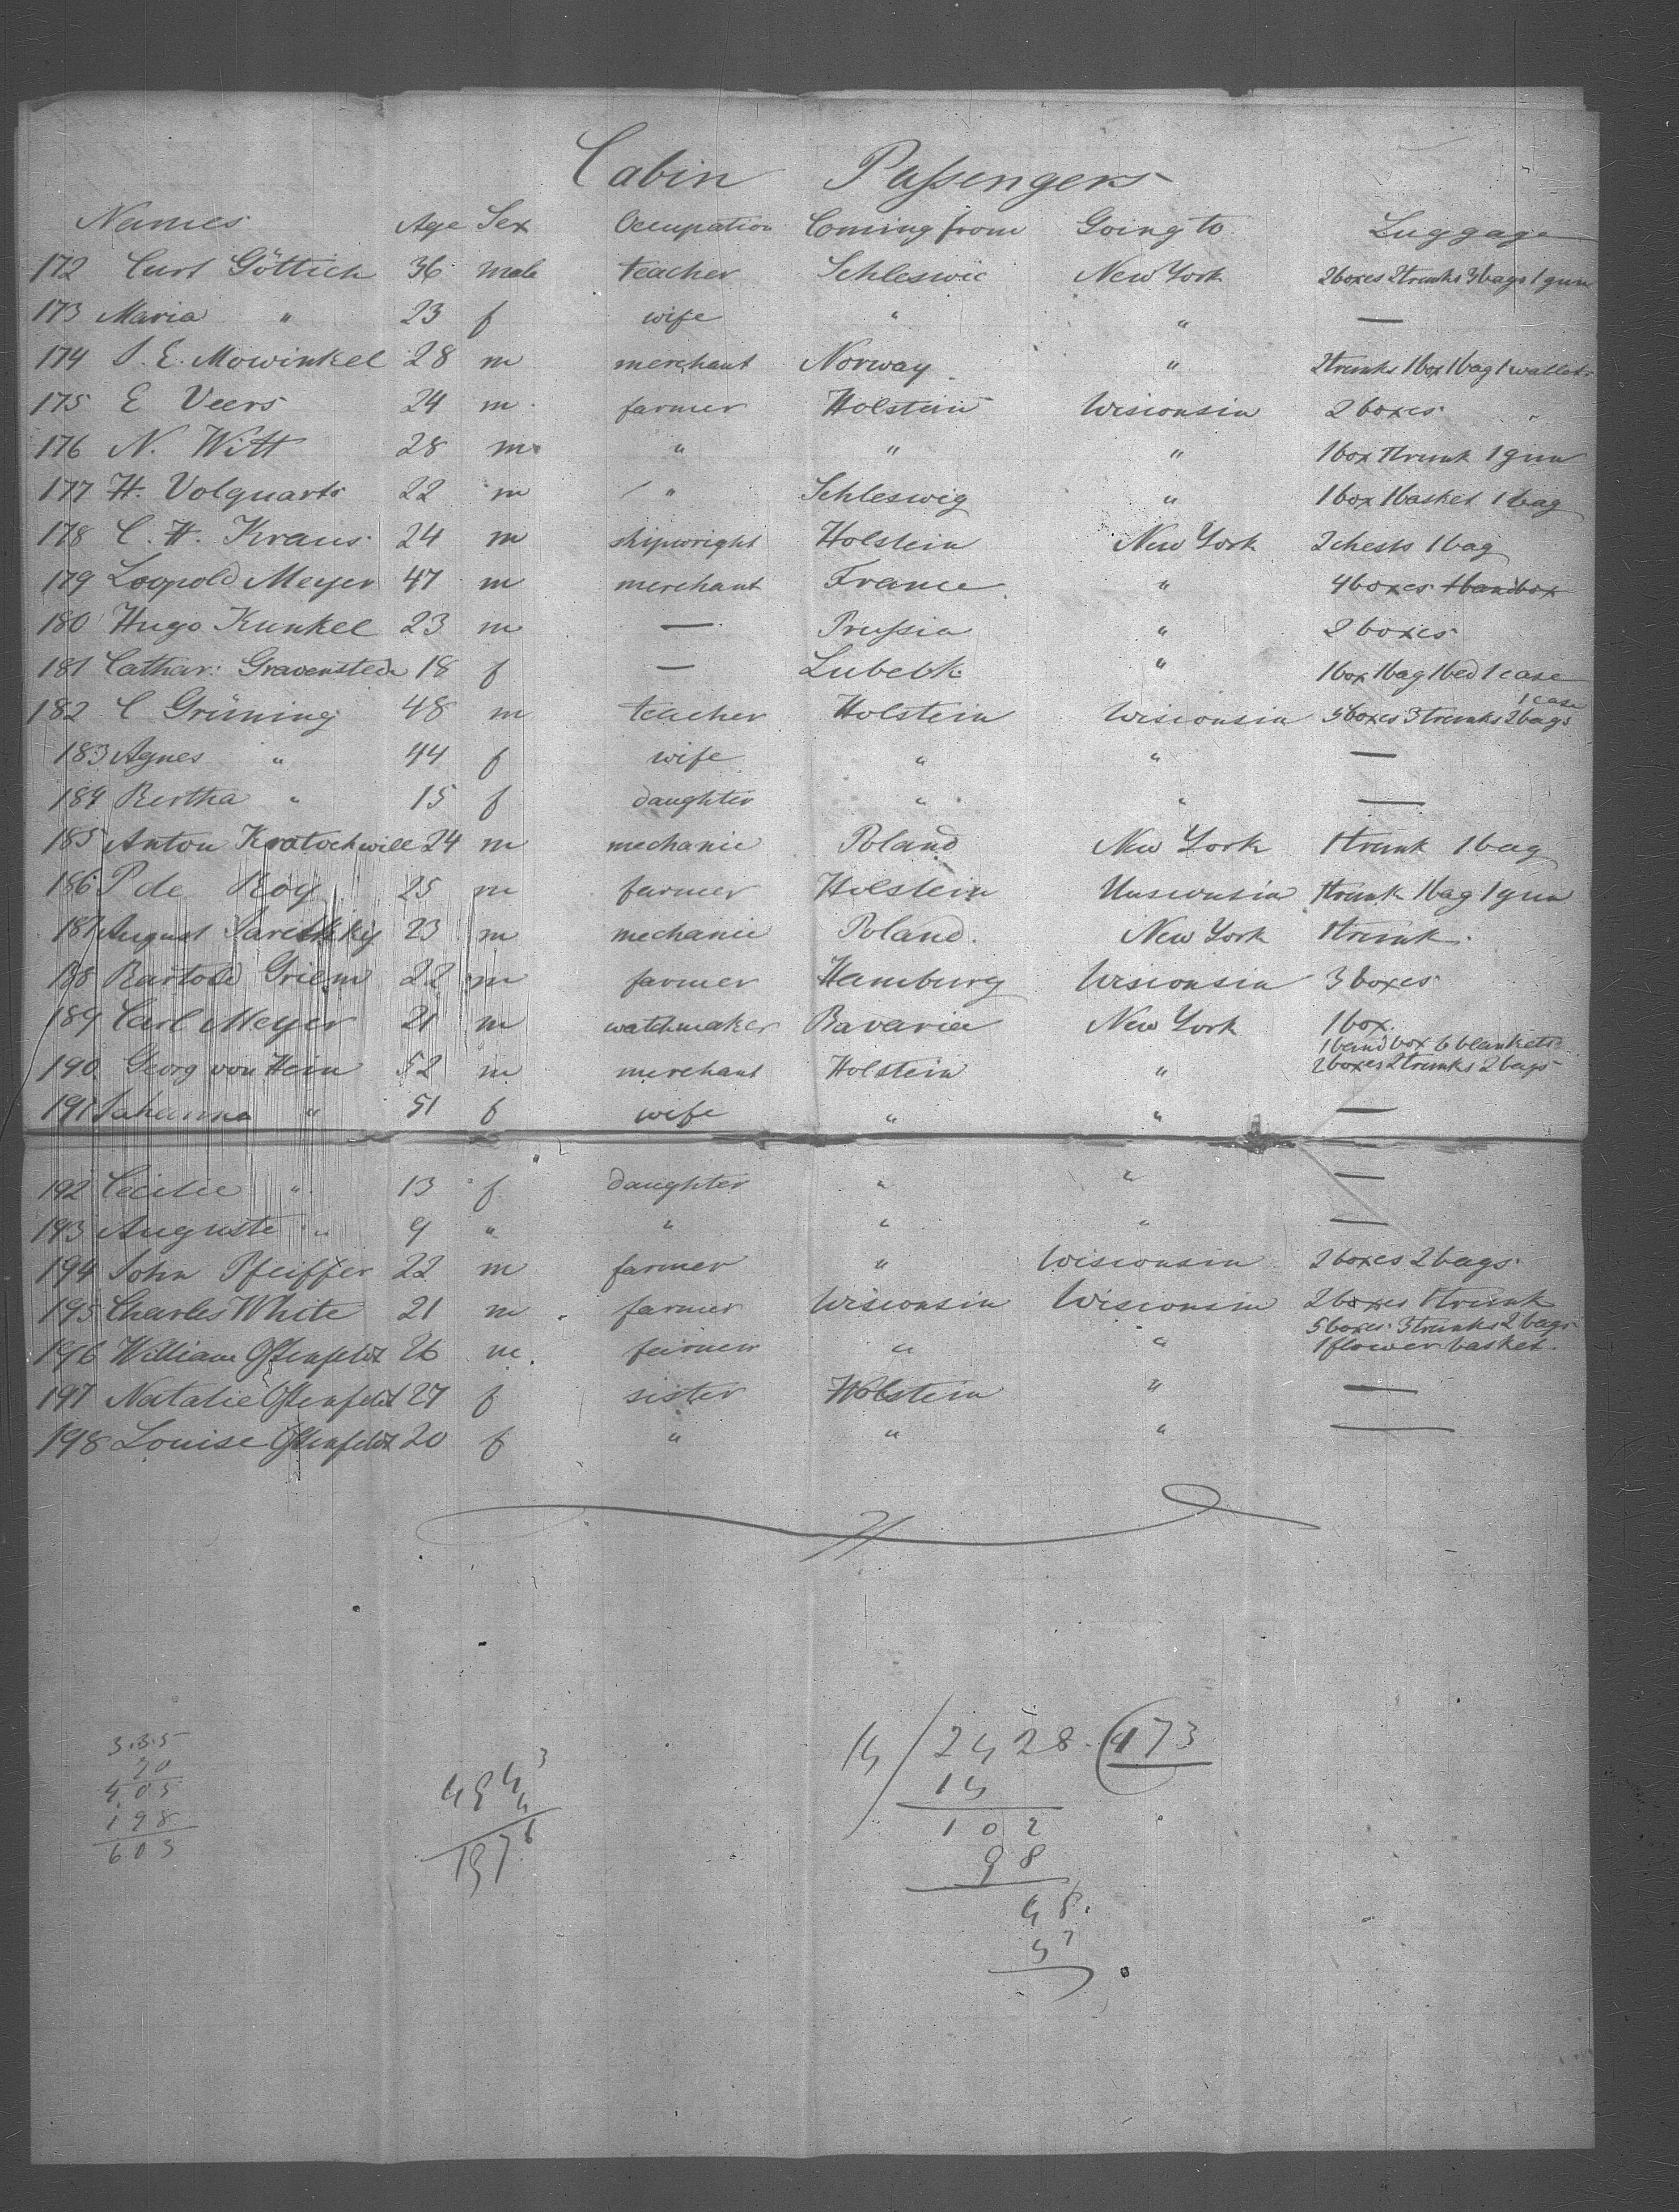 Cabin Passengers
Names Age Sex Occupation Coming from Going to Luggage
172 Curt Göttich 36 male teacher Schleswic New York 2 boxes 2 trunks 3 bags 1 gun
173 Maria " 23 f wife " " —
174 S. E. Mowinkel 28 m merchant Norway " 2 trunks 1 box 1 bag 1 wallet
175 E Veers 24 m farmer Holstein Wisconsin 2 boxes
176 N. Witt 28 m " " " 1 box 1 trunk 1 gun
177 H. Volquarts 22 m " Schleswig " 1 box 1 basket 1 bag
178 C. H. Kraus 24 m shipwright Holstein New York 2 chests 1 bag
179 Leopold Meyer 47 m merchant France " 4 boxes 1 bandbox
180 Hugo Kunkel 23 m — Prussia " 2 boxes
181 Cathar: Gravenstede 18 f — Lubeck " 1 box 1 bag 1 bed 1 case
182 C Grüning 48 m teacher Holstein Wisconsin 5 boxes 3 trunks 2 bags 1 case
183 Agnes " 44 f wife " " —
184 Bertha " 15 f daughter " " —
185 Anton Kratochwill 24 m mechanic Poland New York 1 trunk 1 bag
186 P de Roy 25 m farmer Holstein Wisconsin 1 trunk 1 bag 1 gun
187 August 23 m mechanic Poland. New York 1 trunk.
188 Bartold Griem 22 m farmer Hamburg Wisconsin 3 boxes
189 Carl Meyer 21 m watchmaker Bavaria New York 1 box.
1 bandbox 6 blankets
190 Georg von Hein 52 m merchant Holstein " 2 boxes 2 trunks 2 bags
191 Johanna " 51 f wife " " —
192 Cecilie " 13 f daughter " " —
193 Auguste " 9 " " " " —
194 John Pfeiffer 22 m farmer " Wisconsin 2 boxes 2 bags
195 Charles White 21 m farmer Wisconsin Wisconsin 2 boxes 1 trunk
5 boxes 3 trunks 2 bags
196 William Ostenfeldt 26 m. farmer " " 1 flower basket.
197 Natalie Ostenfeldt 27 f sister Holstein " —
198 Louise Ostenfeldt 20 f " " " —
335
20
405
198
603
494 3
4
1976
14 / 2428 (173
14
102
98
48.